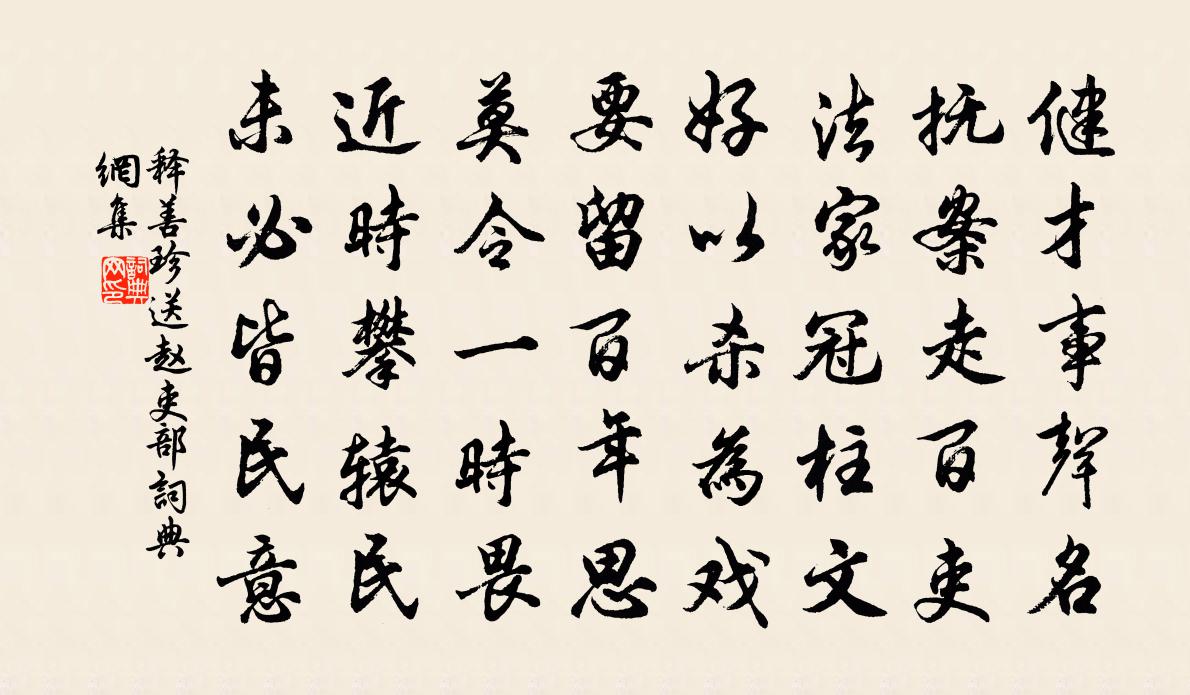 健才事声名
抚案走百吏
法家冠柱文
好以杀為戏
要留百年思
莫令一時畏
近時攀辕民
未必皆民意
释善珍送赵吏部詞典
網集
詞典
网印